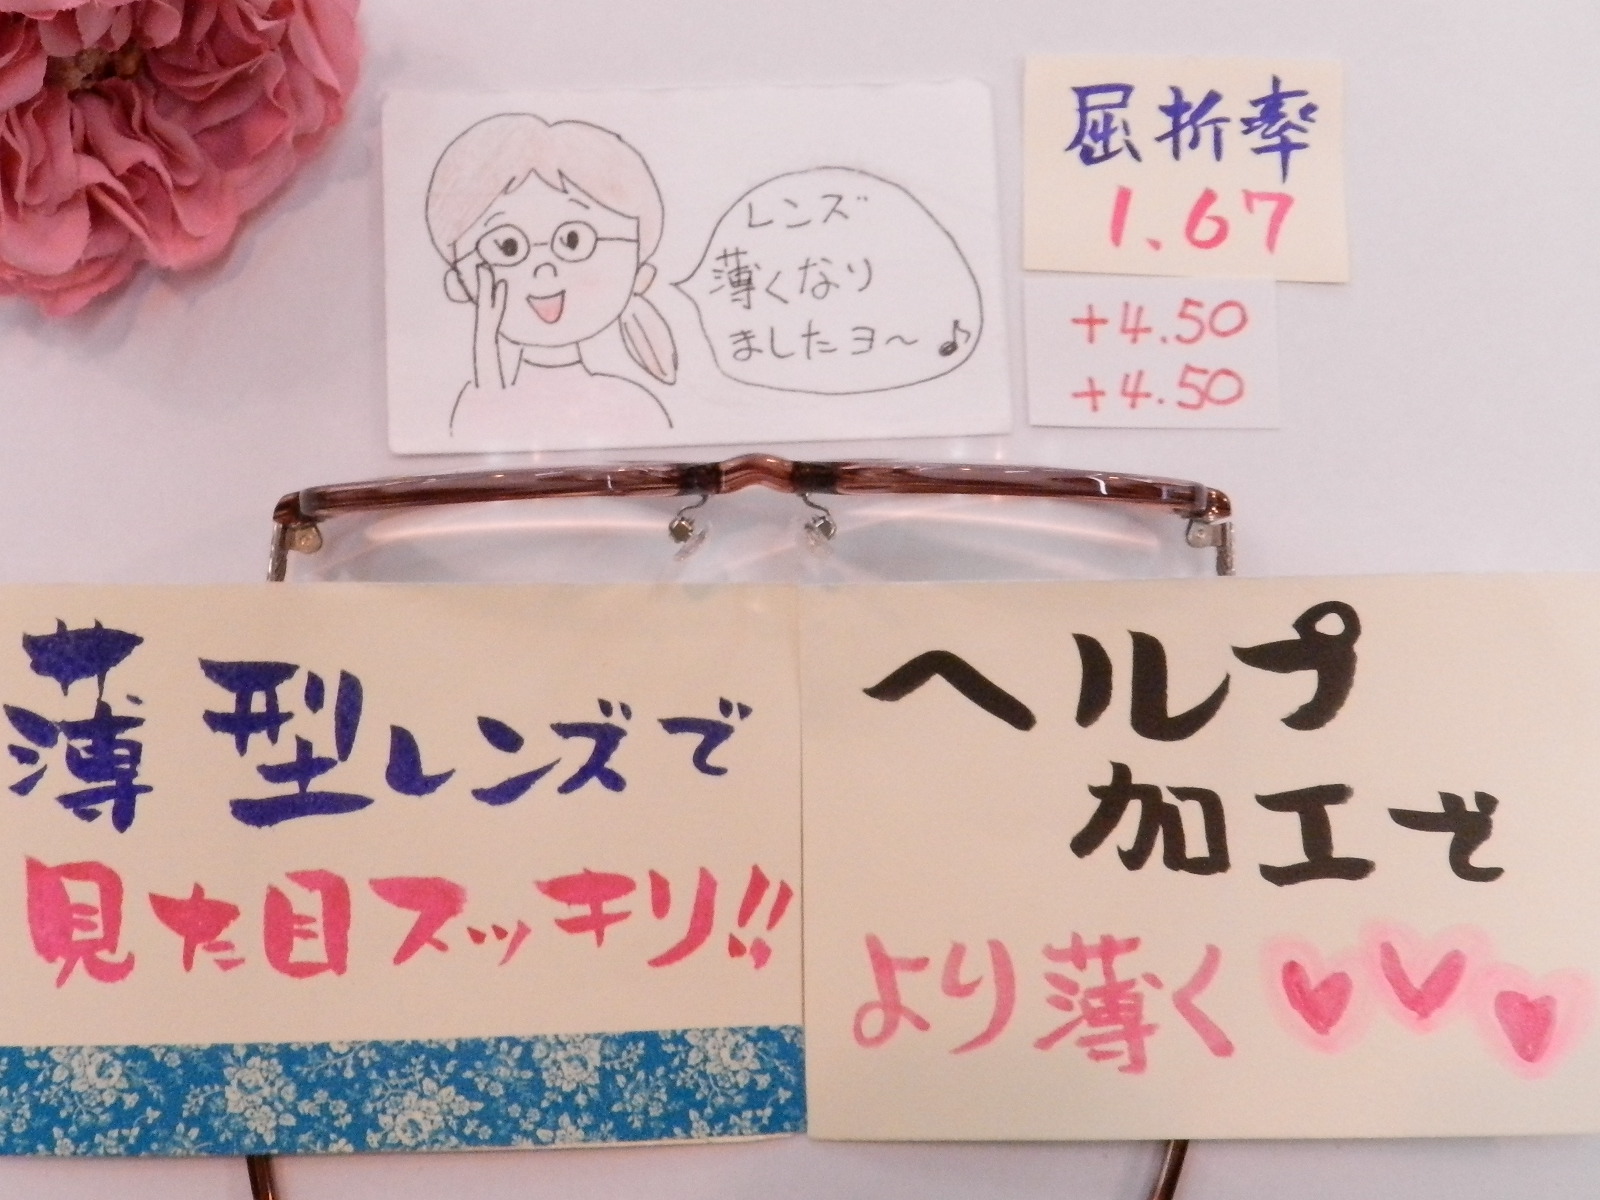 レンズ
薄くなり
ましたヨ～♪
屈折率
1.67
+4.50
+4.50
薄型レンズで
見た目スッキリ!!
ヘルプ
加工で
より薄く